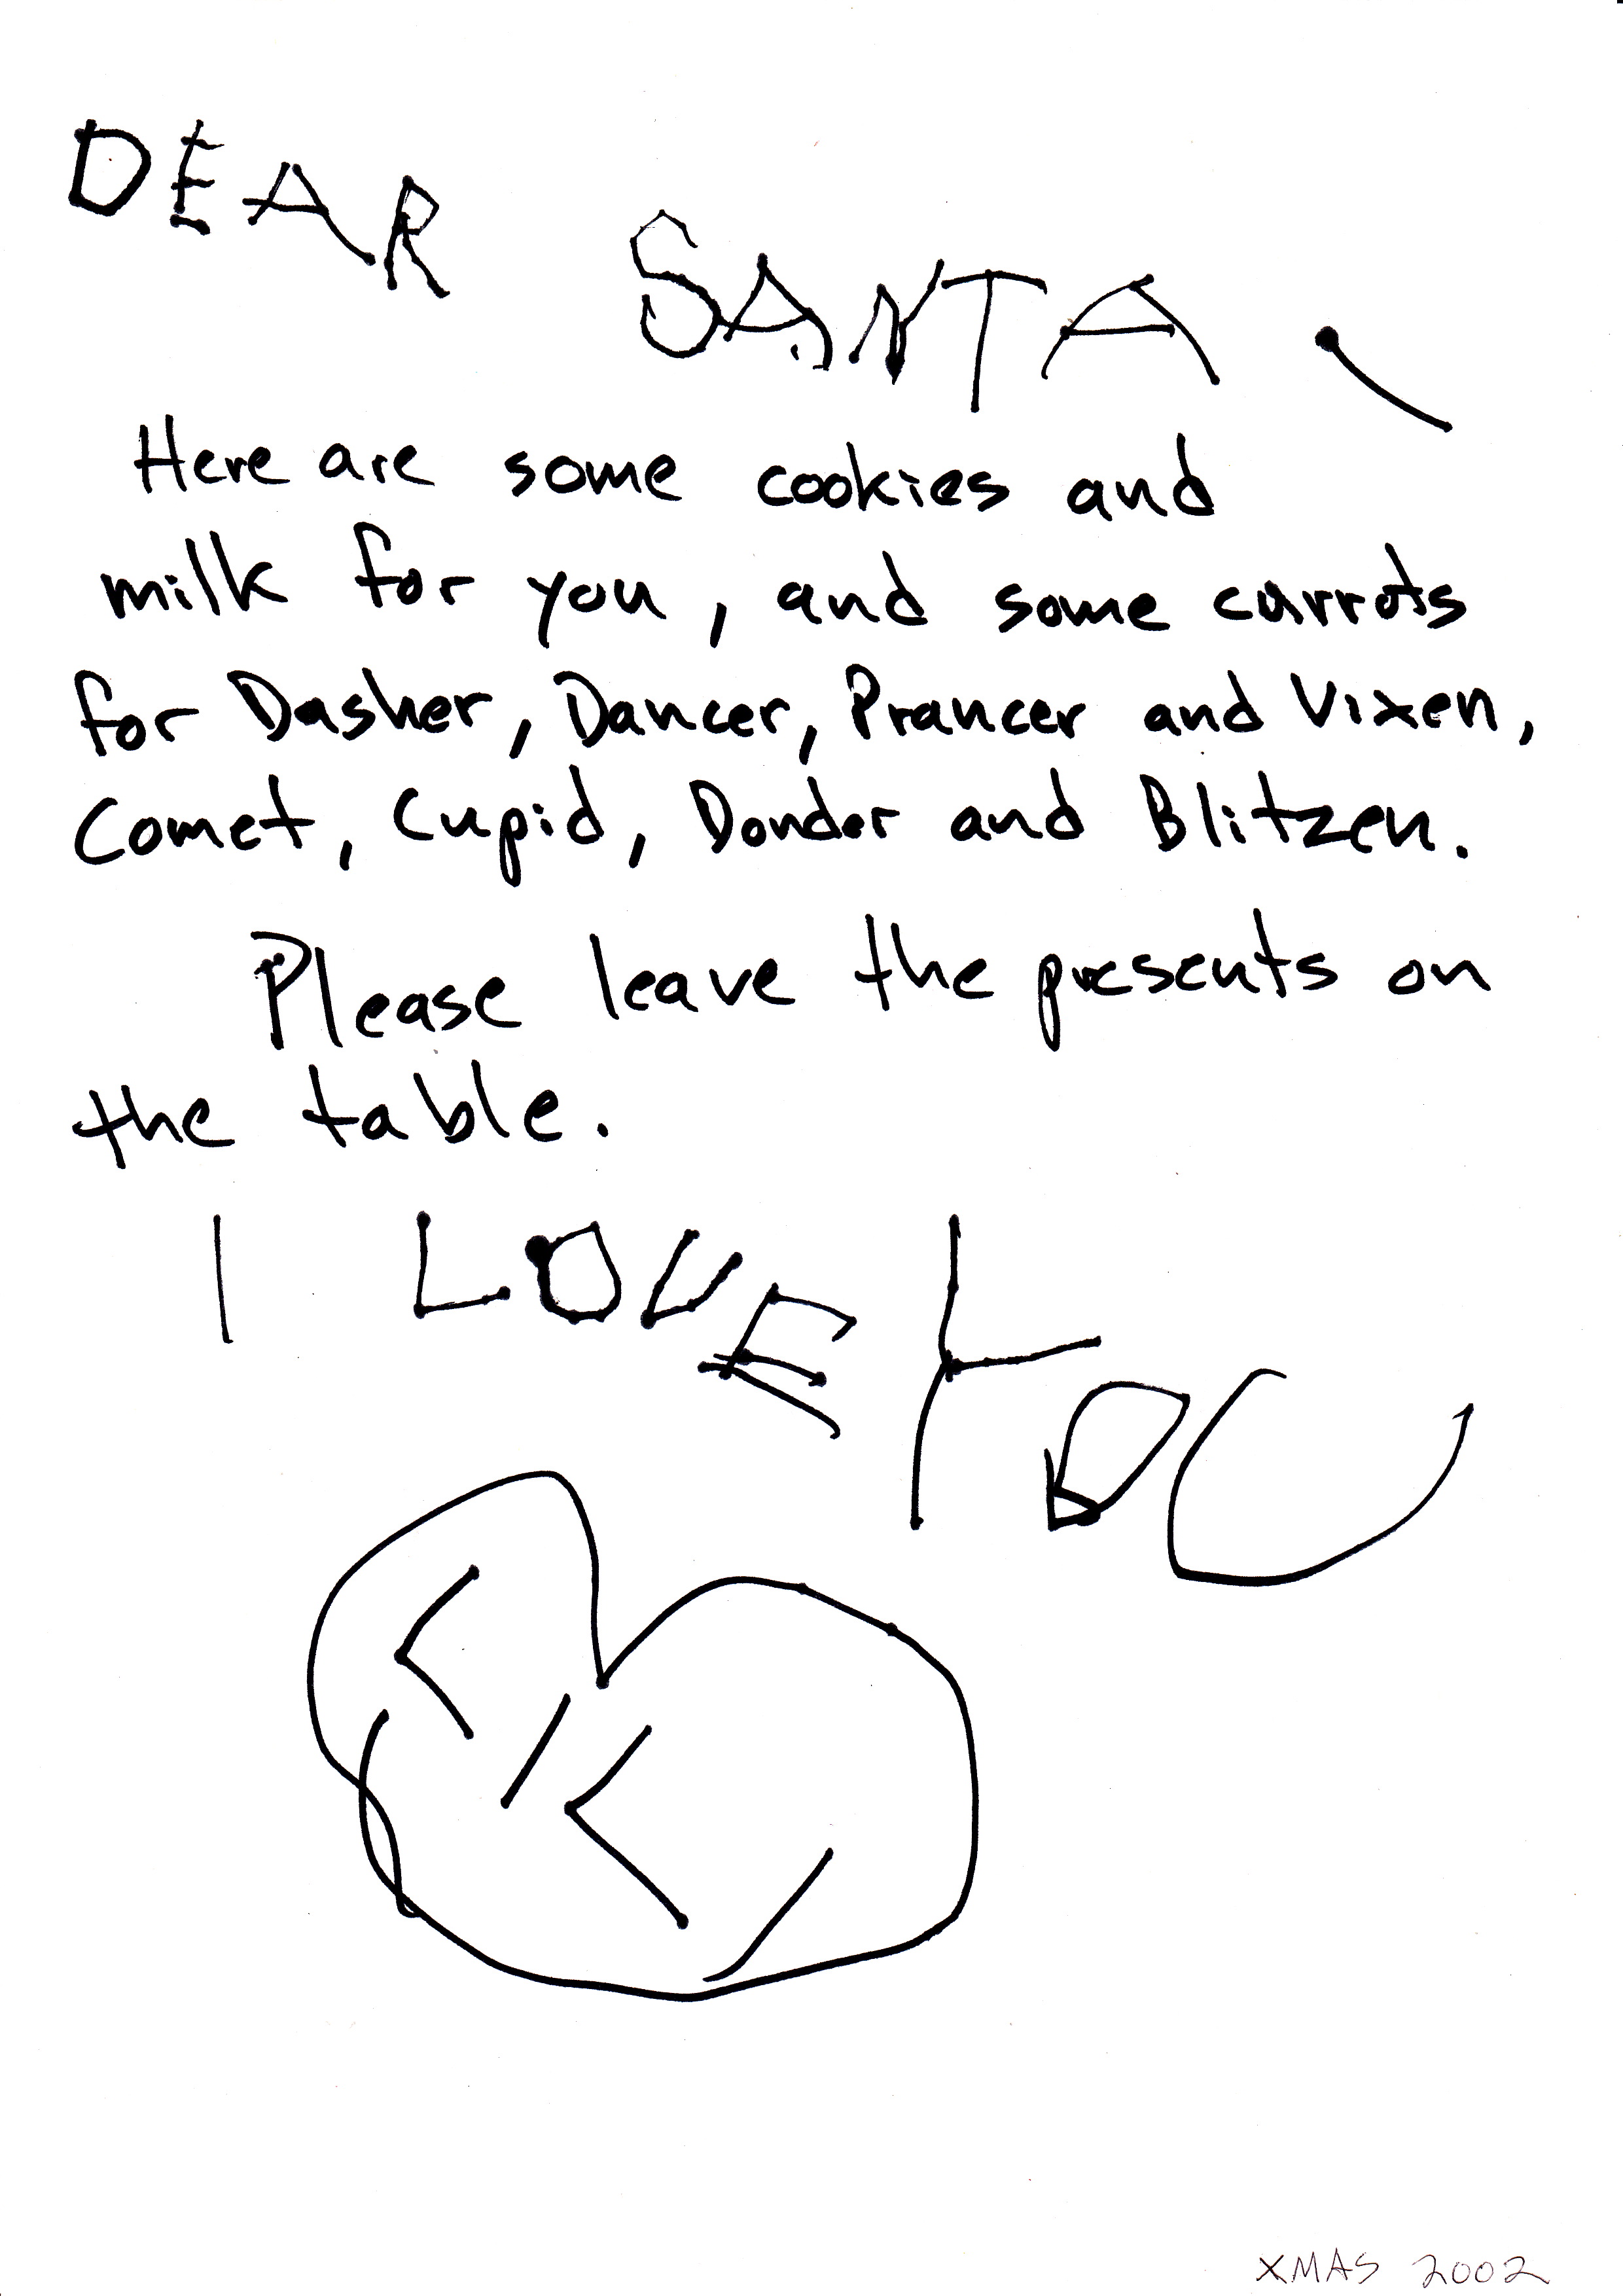 DEAR SANTA,
Here are some cookies and
milk for you, and some carrots
for Dasher, Dancer, Prancer and Vixen,
Comet, Cupid, Donder and Blitzen.
Please leave the presents on
the table.
I LOVE YOU
XMAS 2002